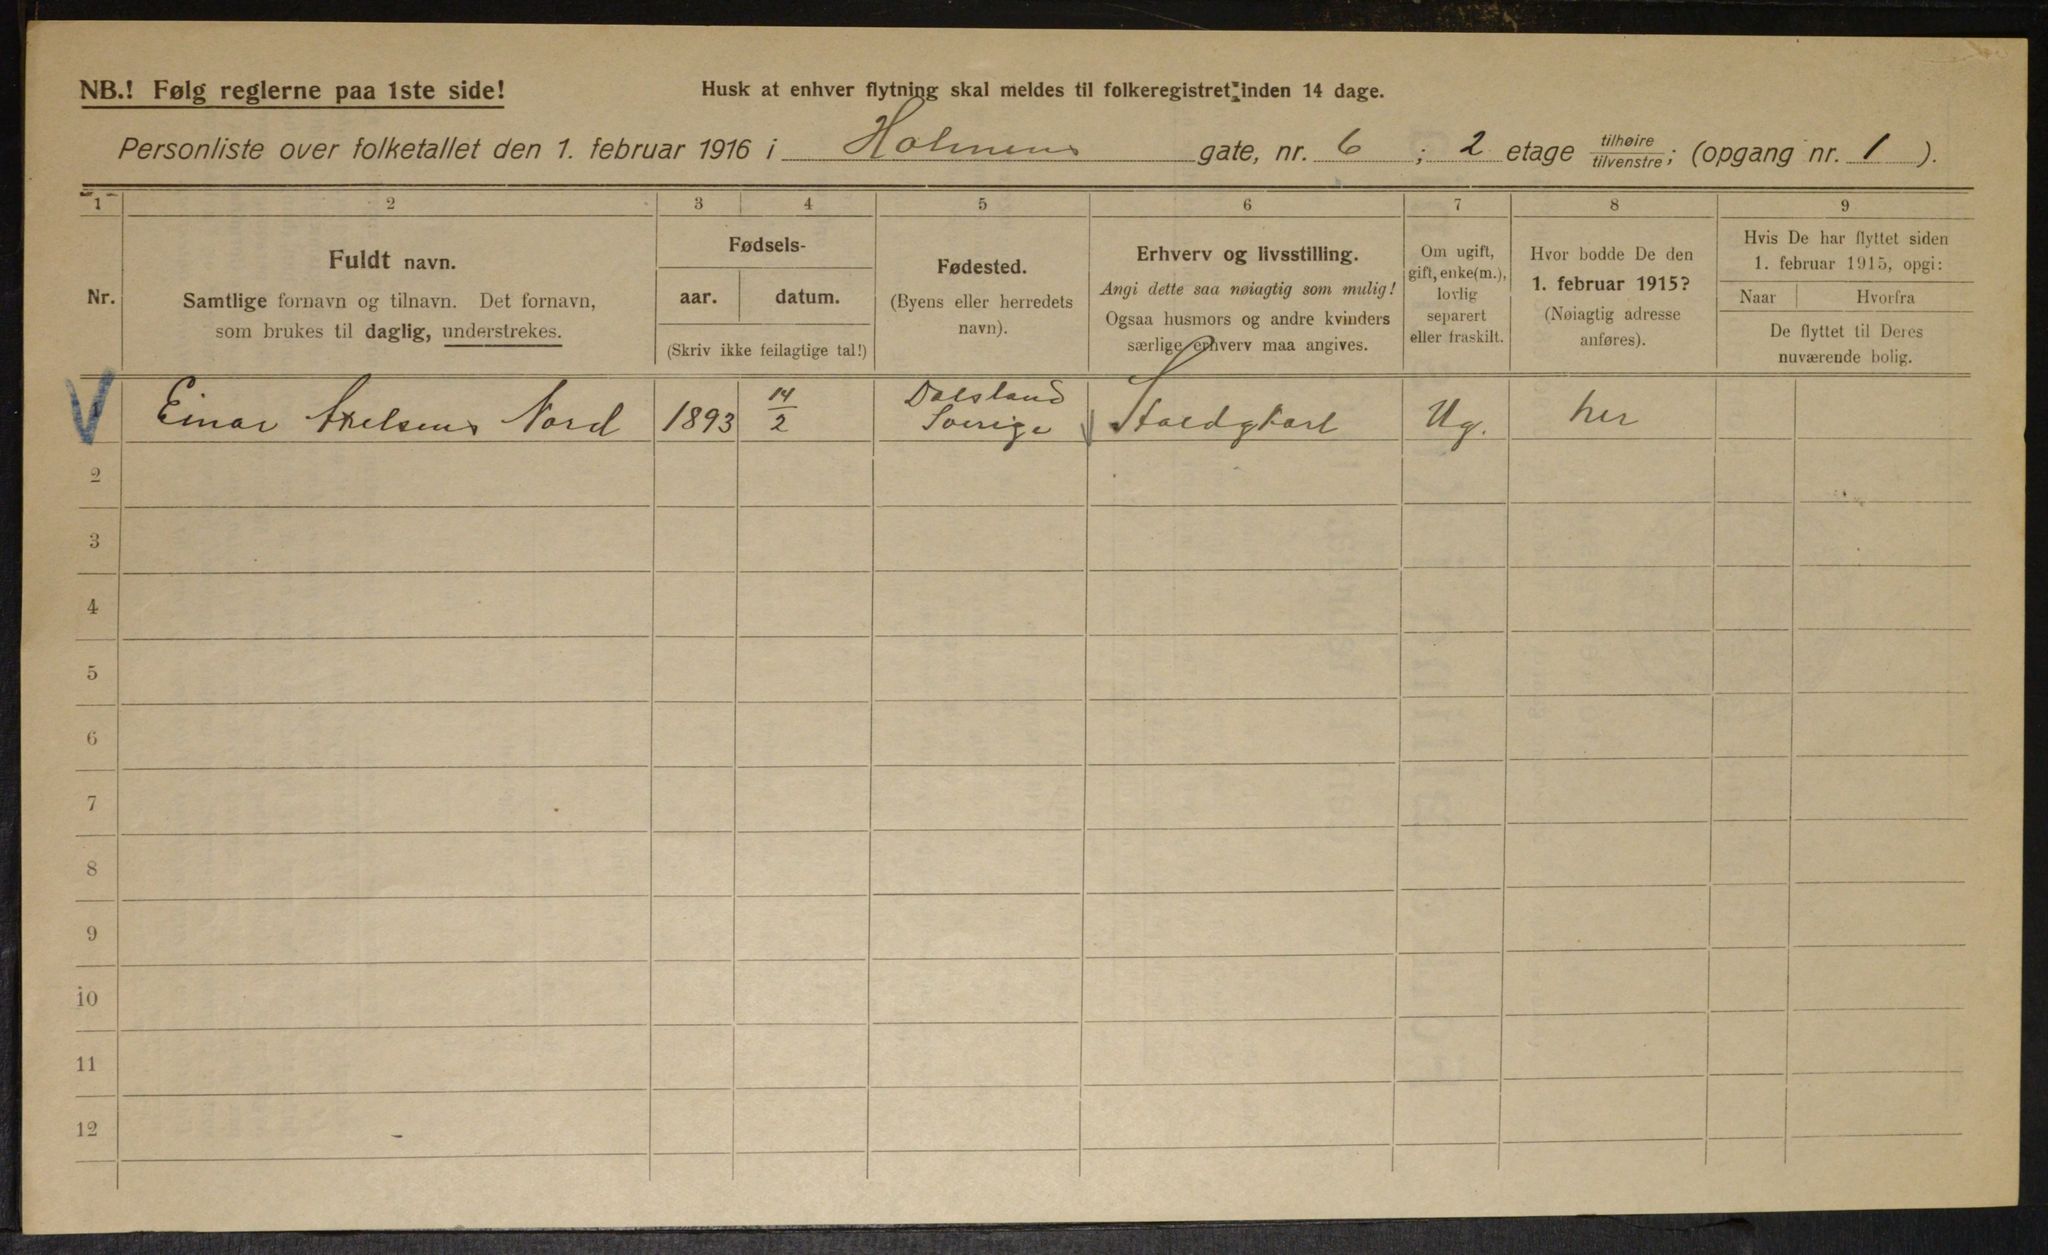 NB.! Følg reglerne paa 1ste side!
Husk at enhver flytning skal meldes til folkeregistret inden 14 dage.
Personliste over folketallet den 1. februar 1916 i Holmens gate, nr. 6 ; 2 etage tilhøire/tilvenstre; (opgang nr. 1 ).
1 2 3 4 5 6 7 8 9
Nr.
Fuldt navn.
Samtlige fornavn og tilnavn. Det fornavn,
som brukes til daglig, understrekes.
Fødsels-
aar. datum.
(Skriv ikke feilagtige tal!)
Fødested.
(Byens eller herredets
navn).
Erhverv og livsstilling.
Angi dette saa nøiagtig som mulig!
Ogsaa husmors og andre kvinders
særlige erhverv maa angives.
Om ugift,
gift, enke(m.),
lovlig
separert
eller fraskilt.
Hvor bodde De den
1. februar 1915?
(Nøiagtig adresse
anføres).
Hvis De har flyttet siden
1. februar 1915, opgi:
Naar Hvorfra
De flyttet til Deres
nuværende bolig.
1 Einar Axelsens Nord 1893 14/2 Dalsland Sverige Staldgkarl Ug. her
2
3
4
5
6
7
8
9
10
11
12